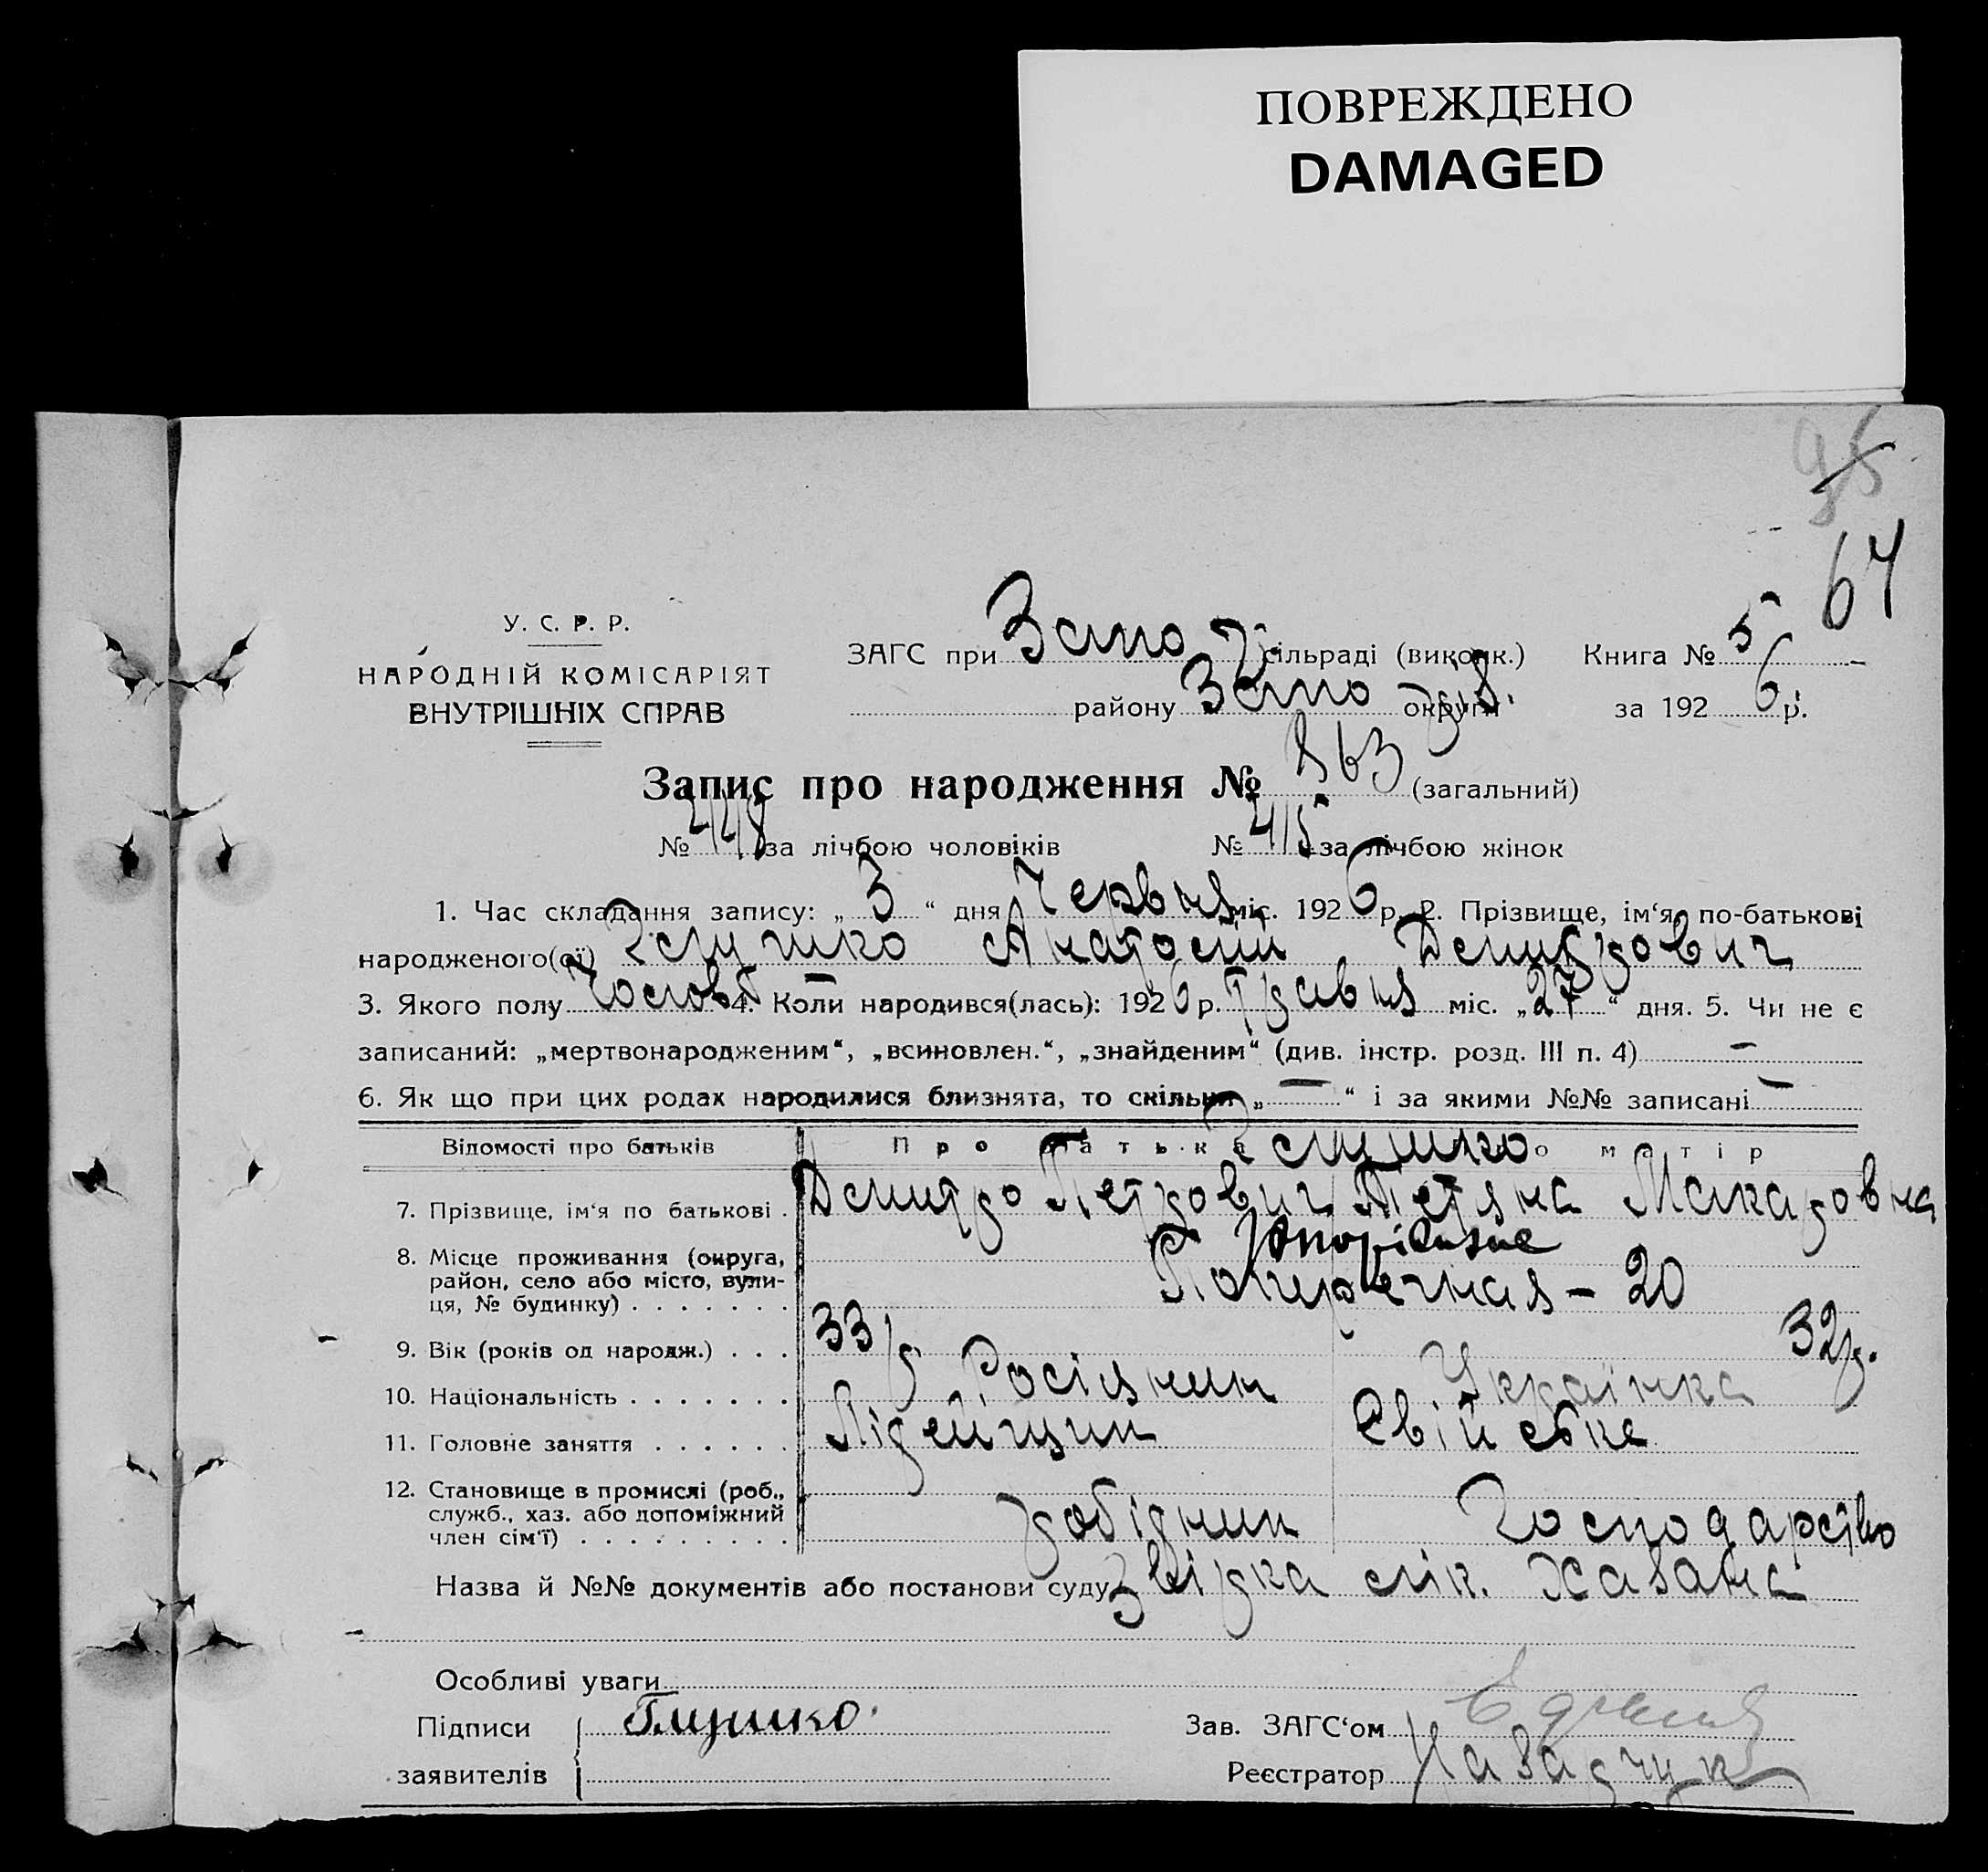 ПОВРЕЖДЕНО
DAMAGED
64
У. С. Р. Р.
НАРОДНІЙ КОМІСАРІЯТ
ВНУТРІШНІХ СПРАВ
ЗАГС при Запо сільраді (виконк.) Книга № 5
району Запо округи за 1926 р.
Запис про народження № 863 (загальний)
№ 448 за лічбою чоловіків № 415 за лічбою жінок
1. Час складання запису: „ 3 “ дня Червня міс. 1926 р. 2. Прізвище, ім‘я, по-батькові
народженого(ої) Глушко Анатолій Демитрович
3. Якого полу Чолов 4. Коли народився(лась): 1926 р. Травня міс. „ 27 “ дня. 5. Чи не є
записаний: „мертвонародженим“, „всиновлен.“, „знайденим“ (див. інстр. розд. III п. 4) –
6. Як що при цих родах народилися близнята, то скільки „ — “ і за якими №№ записані —
Відомості про батьків Про батька Глушко Про матір
7. Прізвище, ім‘я по батькові . Демитро Петрович Тетяна Макаровна
8. Місце проживання (округа,
район, село або місто, вули-
ця, № будинку) . . . . . . . Запоріжжє
Поперечная – 20
9. Вік (років од народж.) . . . 33 р 32 р.
10. Національність . . . . . . . Росіянин Українка
11. Головне заняття . . . . . . Лідейщик Свійське
12. Становище в промислі (роб.,
служб., хаз. або допоміжний
член сім‘ї) . . . . . . . . . робідник Господарство
Назва й №№ документів або постанови суду Звірка лік. Хазана
Особливі уваги
Підписи Глушко.
заявителів
Зав. ЗАГС‘ом
Реєстратор